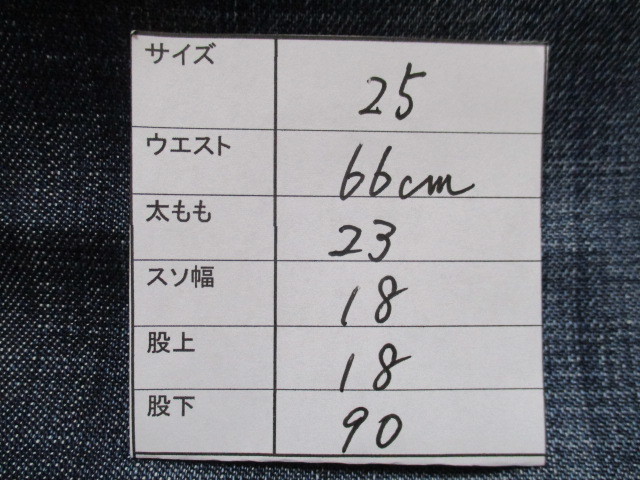 サイズ 25
ウエスト 66cm
太もも 23
スソ幅 18
股上 18
股下 90